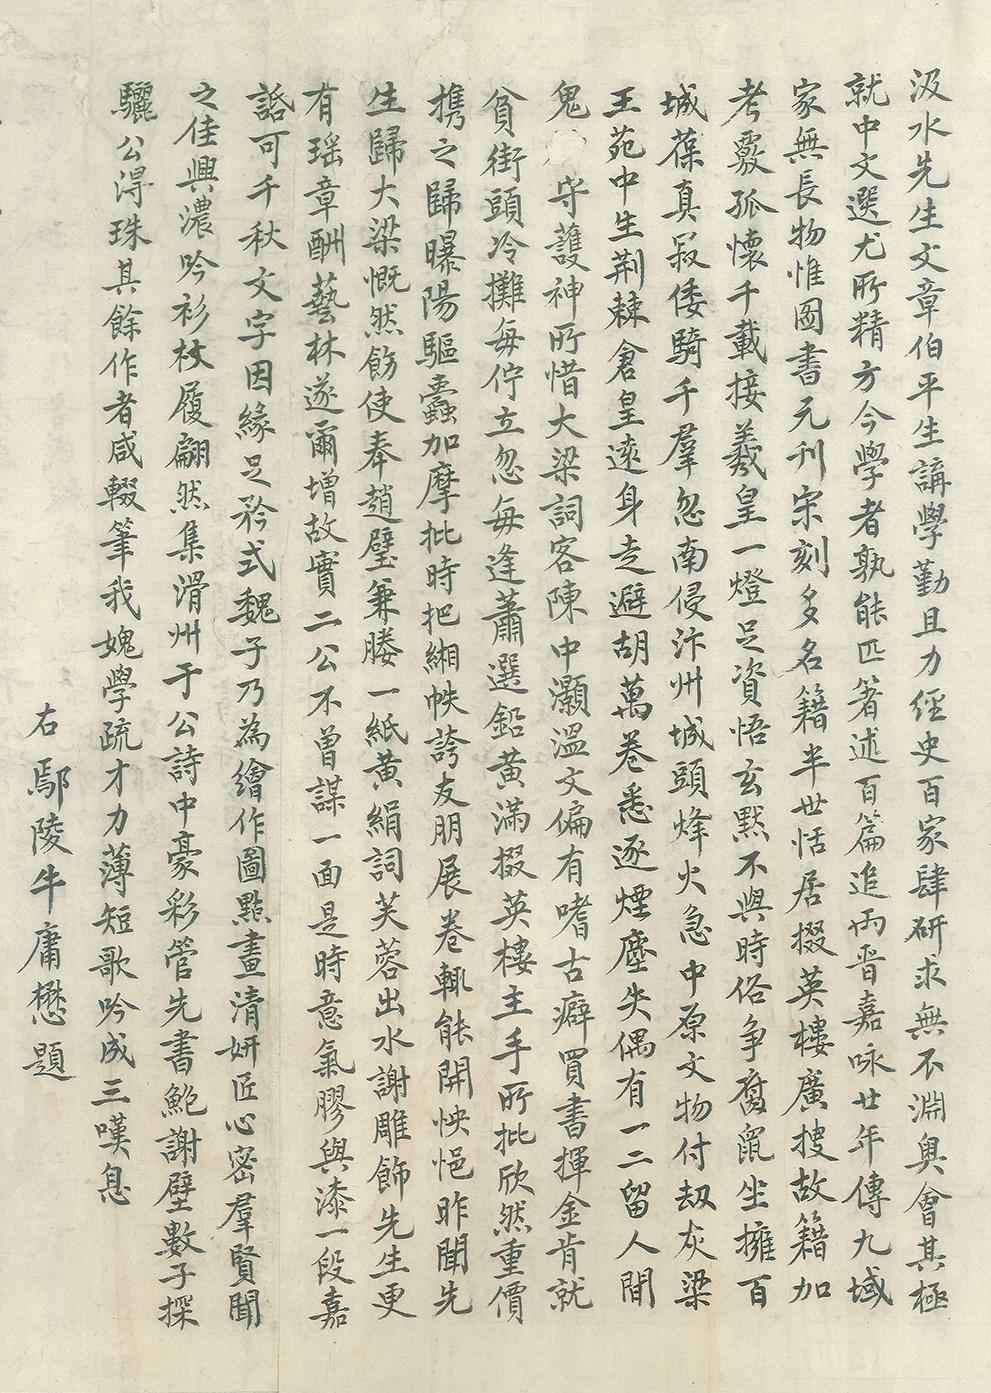 汲水先生文章伯平生講學勤且力經史百家肆研求無不淵奥會其極
就中文選尤所精方今學者孰能匹著述百篇追兩晋嘉咏廿年傳九域
家無長物惟圖書元刊宋刻多名籍半世恬居掇英樓廣搜故籍加
考覈孤懷千載接羲皇一燈足資悟玄默不與時俗争腐䑕坐擁百
城葆真寂倭騎千羣忽南侵汴州城頭烽火急中原文物付刼灰梁
王苑中生荆棘倉皇遠身走避胡萬卷悉逐煙塵失偶有一二留人間
鬼守護神所惜大梁詞客陳中灝溫文偏有嗜古癖買書揮金肯就
貧街頭冷攤每佇立忽每逢蕭選鉛黄滿掇英樓主手所批欣然重價
携之歸曝陽驅蠹加摩批時把緗帙誇友朋展卷輒能開怏悒昨聞先
生歸大梁慨然飭使奉趙璧兼賸一紙黄絹詞芙蓉出水謝雕飾先生更
有瑶章酬藝林遂爾增故實二公不曾謀一面是時意氣膠與漆一段嘉
話可千秋文字因緣足矜式魏子乃為繪作圖㸃畫清妍匠心密羣賢聞
之佳興濃吟衫杖履翩然集滑州于公詩中豪彩管先書鮑謝壁數子探
驪公淂珠其餘作者咸輟筆我媿學疏才力薄短歌吟成三嘆息
右鄢陵牛庸懋題